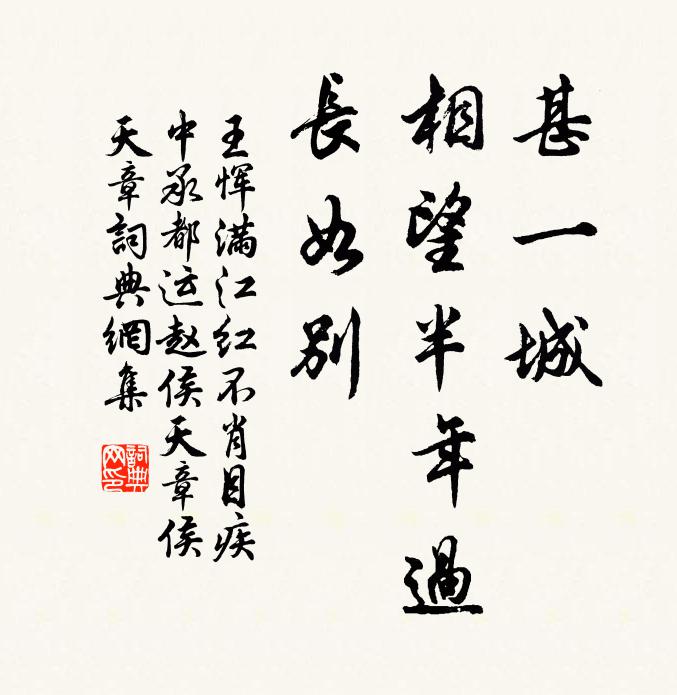 甚一城
相望半年過
長如別
王恽滿江红不肖目疾
中承都运赵侯天章侯
天章詞典網集
詞典網印